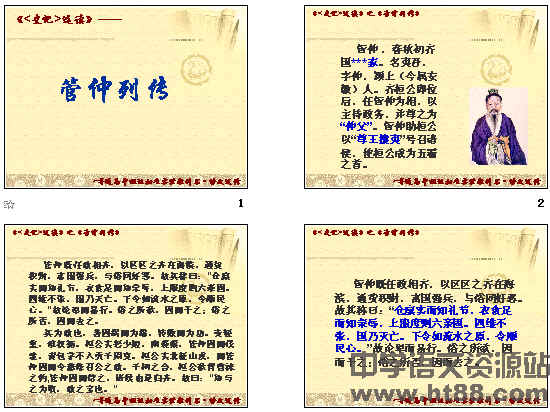 《<史记>选读》
管仲列传
1
《<史记>选读》之《管仲列传》
管仲，春秋初齐
国***家。名夷吾，
字仲，颍上（今属安
徽）人。齐桓公即位
后，任管仲为相，以
主持政务，并尊之为
“仲父”。管仲助桓公
以“尊王攘夷”号召诸
侯，使桓公成为五霸
之首。
2
管仲既任政相齐，以区区之齐在海滨，通货
积财，富国强兵，与俗同好恶。故其称曰：“仓廪
实而知礼节，衣食足而知荣辱，上服度则六亲固。
四维不张，国乃灭亡。下令如流水之原，令顺民
心。”故论卑而易行。俗之所欲，因而予之；俗之
所否，因而去之。
其为政也，善因祸而为福，转败而为功。贵轻
重，慎权衡。桓公实怒少姬，南袭蔡，管仲因而伐
楚，责包茅不入贡于周室。桓公实北征山戎，而管
仲因而令燕修召公之政。于柯之会，桓公欲背曹沫
之约，管仲因而信之，诸侯由是归齐。故曰：“知与
之为取，政之宝也。”
管仲既任政相齐，以区区之齐在海
滨，通货积财，富国强兵，与俗同好恶。
故其称曰：“仓廪实而知礼节，衣食足
而知荣辱，上服度则六亲固。四维不
张，国乃灭亡。下令如流水之原，令顺
民心。”故论卑而易行。俗之所欲，因
而予之；俗之所否，因而去之。
www.ht88.com